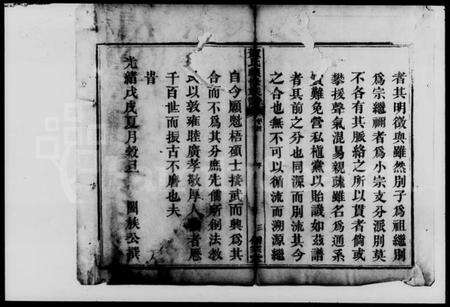 者其明徵與雖然別子為祖繼別
為宗繼禰者為小宗支分派別莫
不各有其脈絡之所以貫者倘或
攀援聲氣混易親疎雖名為通系
難免營私植黨以貽譏如茲譜
者其前之分也同源而別流其今
之合也無不可以循流而溯源繼
自今願魁梧碩士接武而興為其
合而不為其分庶先儒所創法教
以敦雍睦廣孝敬厚人者應
千百世而振古不磨也夫
時
光緒戊戌夏月穀旦 闔族公撰